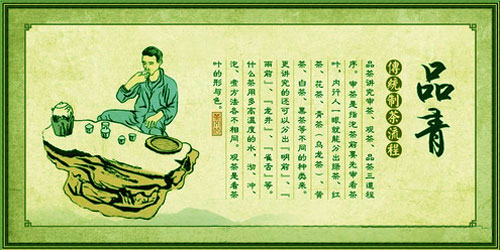 品青
傳統制茶流程
品茶讲究审茶、观茶、品茶三道程
序。审茶是指泡茶前要先审看茶
叶，内行人一眼就能分出绿茶、红
茶、花茶、青茶（乌龙茶）黄
茶、白茶、黑茶等不同的种类来。
更讲究的还可以分出『明前』、『
雨前』、『龙井』、『雀舌』等。
什么茶用多高温度的水，沏、冲、
泡、煮方法各不相同。观茶是看茶
叶的形与色。